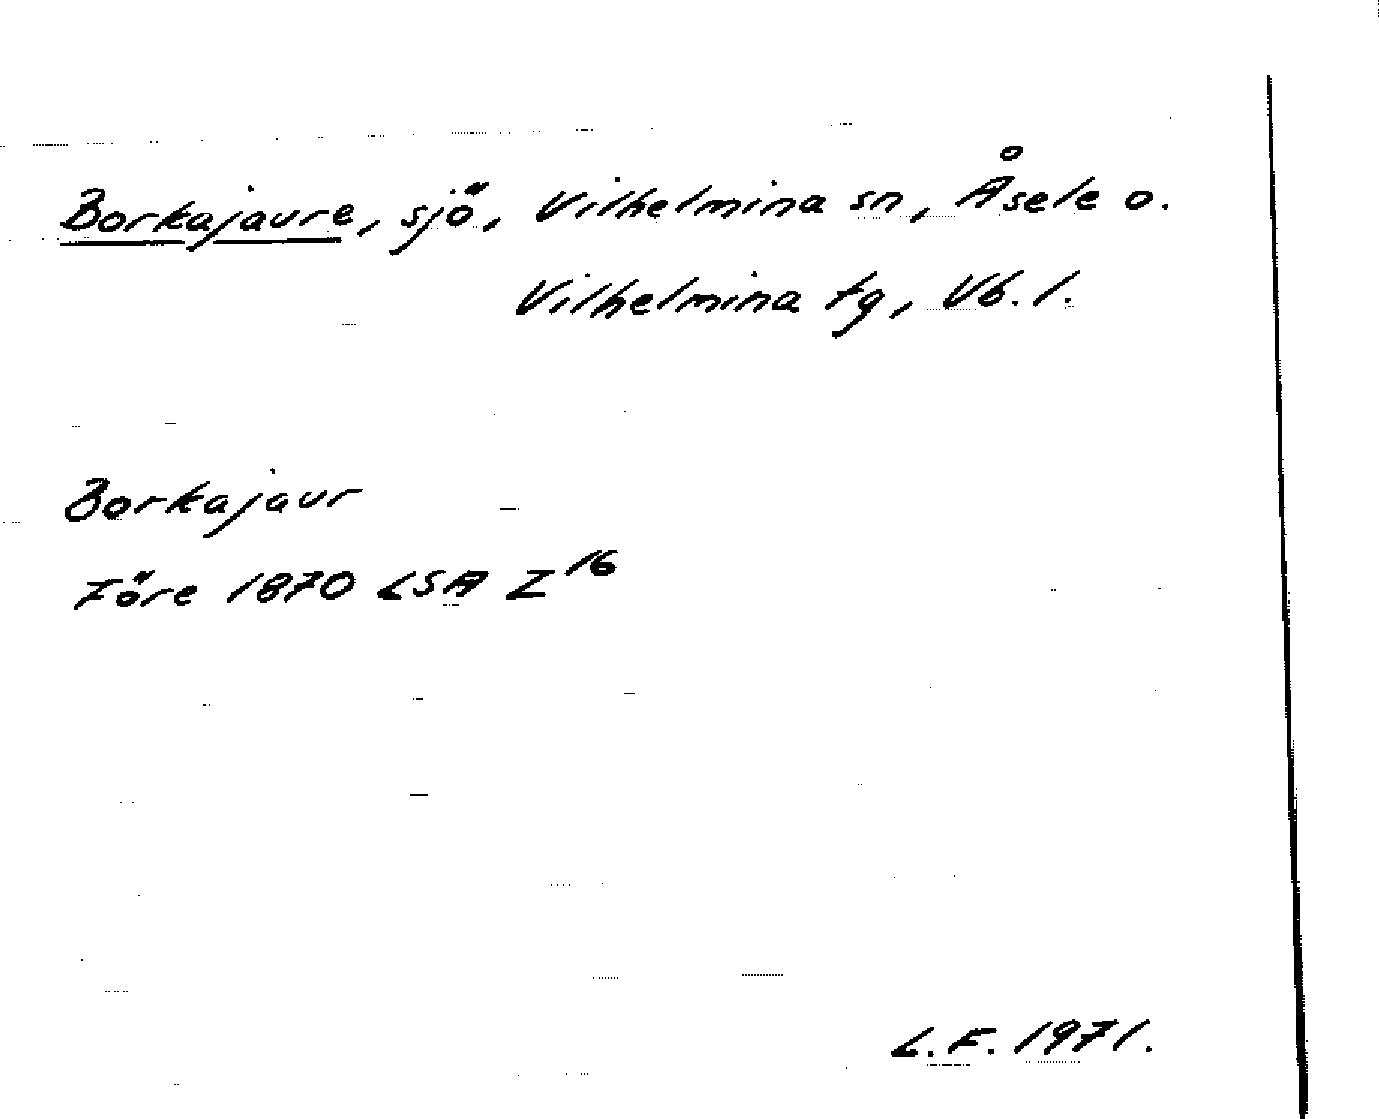 Borkajaure, sjö, Vilhelmina sn, Åsele o.
Vilhelmina tg, Vb. l.
Borkajaur
Före 1870 LSA Z16
L.F. 1971.